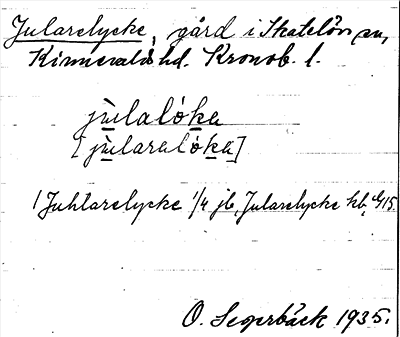 Jularelycke, gård i Skatelövs sn,
Kinnevalds hd. Kronob. l.
jùlalo̍ka
[jùlaralo̍ka]
1 Juhlarelycke 1/4 jb, Jularelycke kb, 1915.
O. Segerbäck 1935.